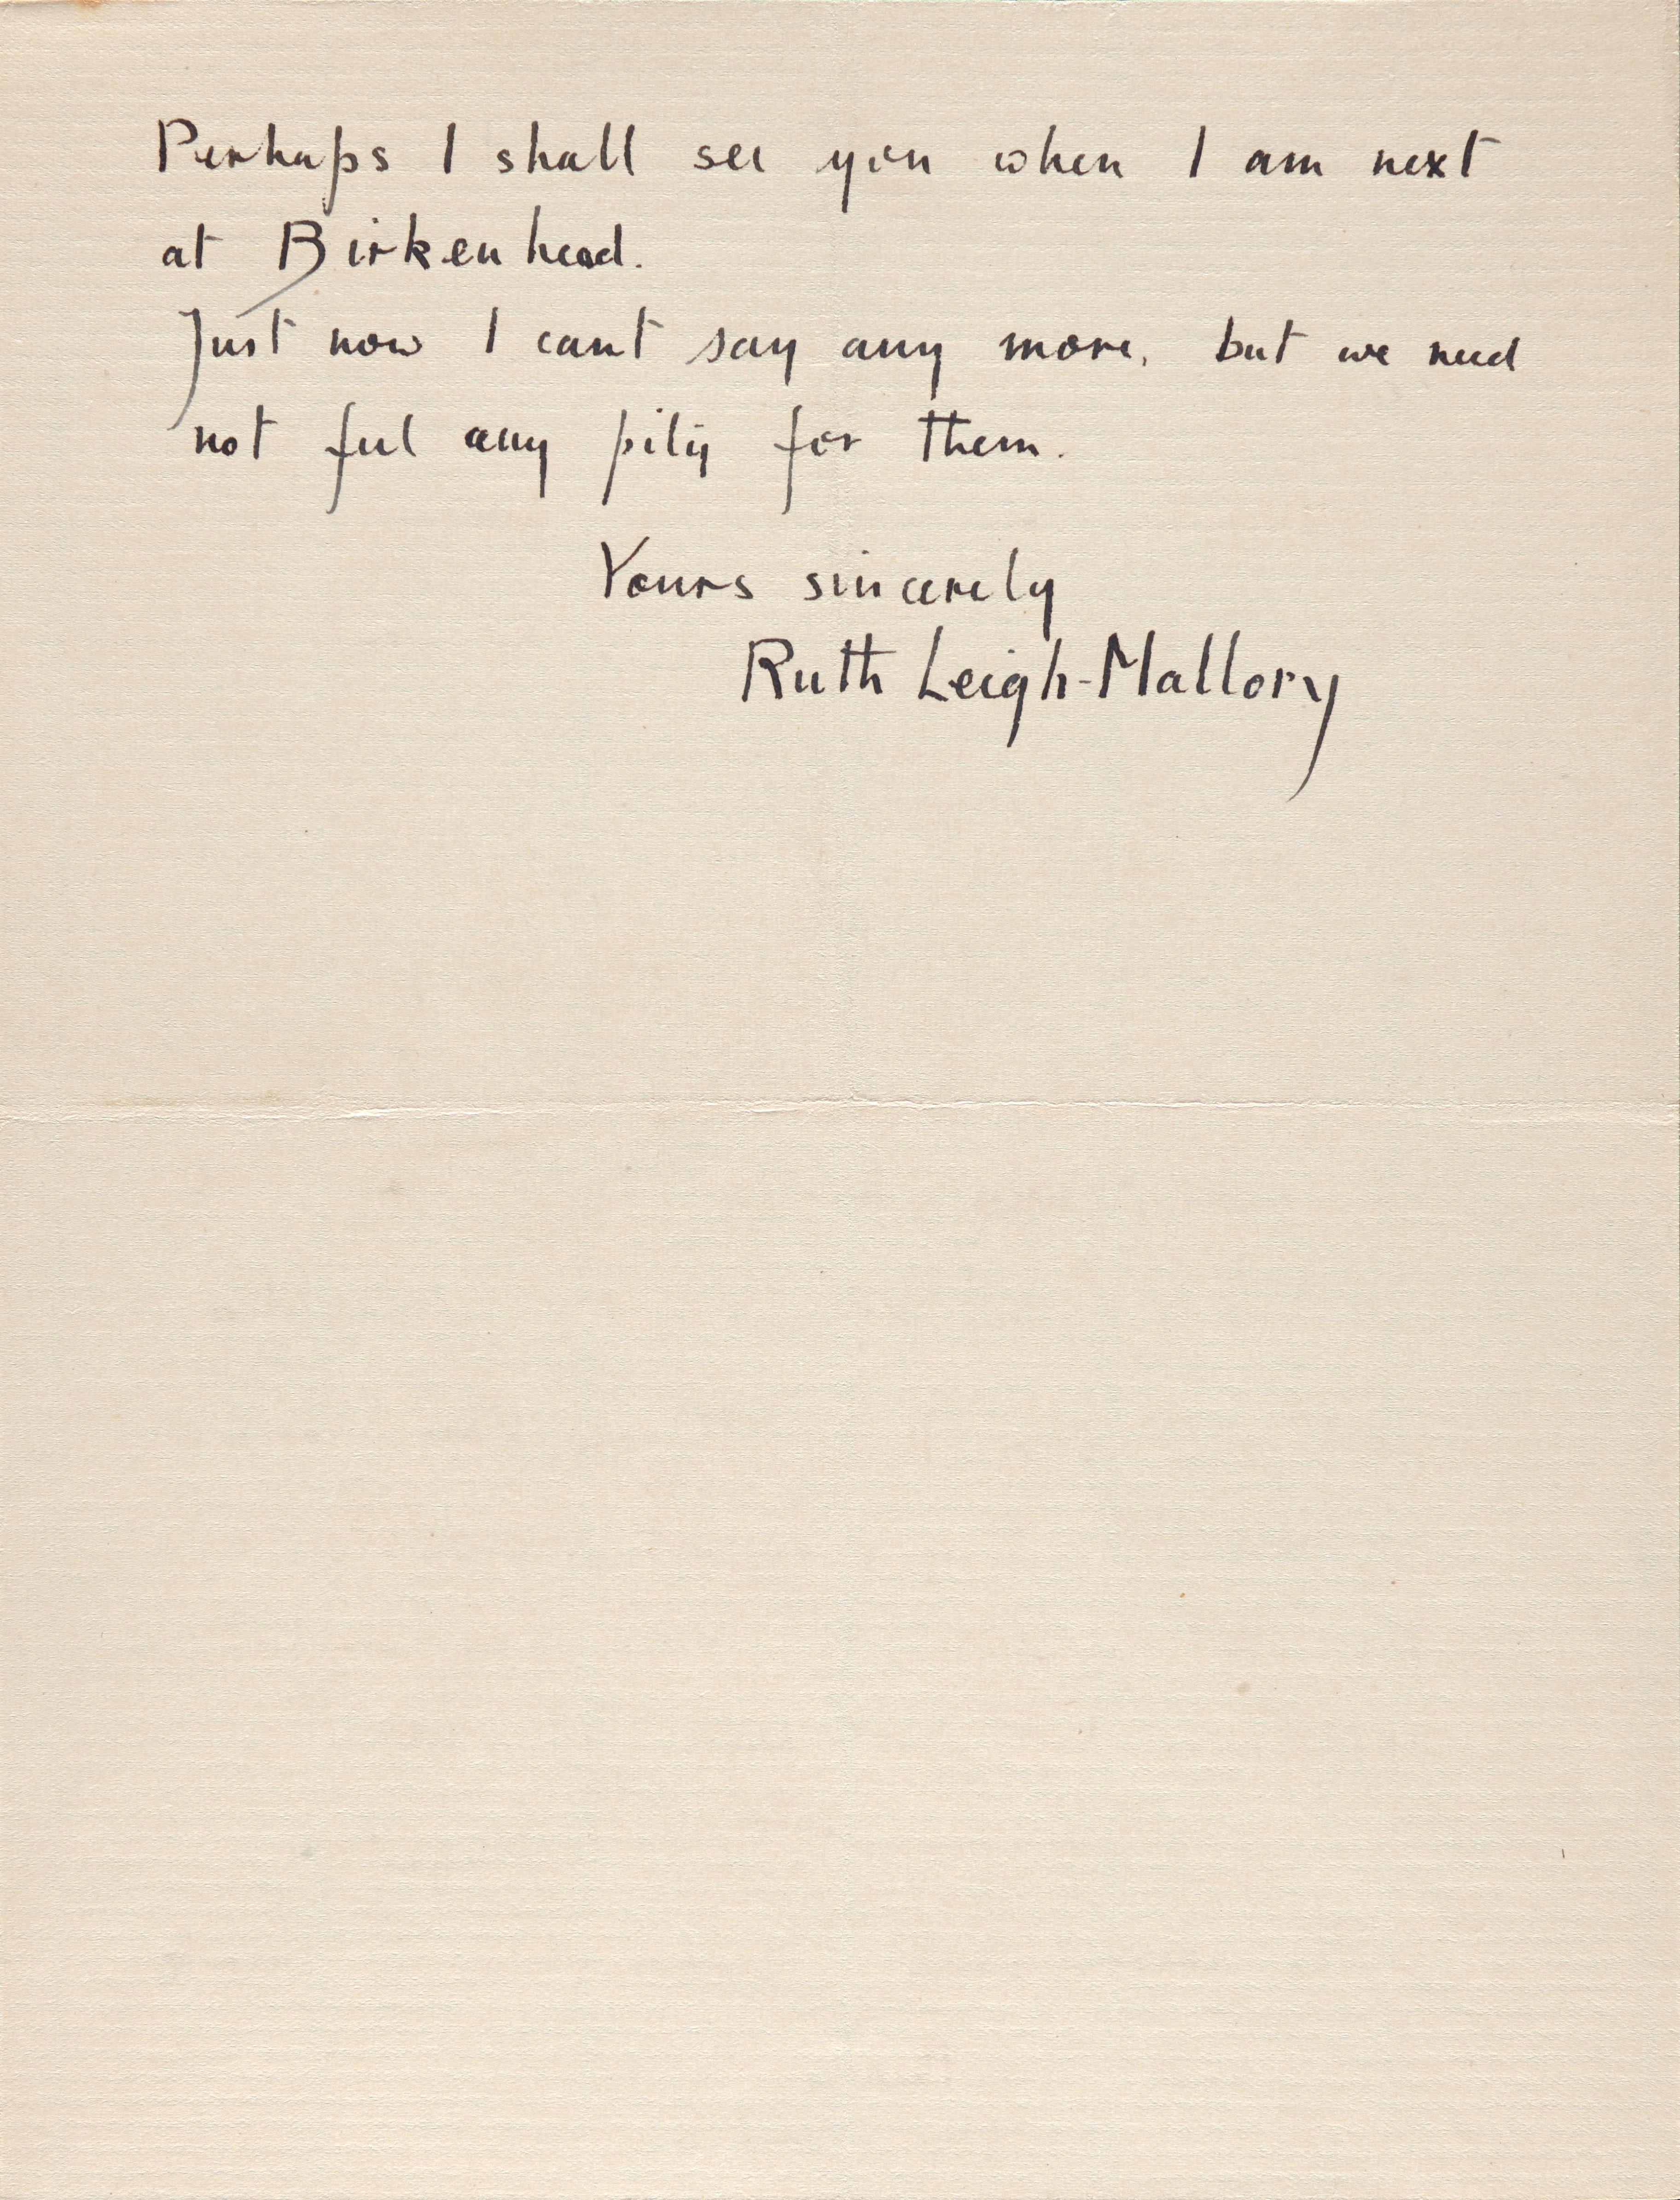 Perhaps I shall see you when I am next
at Birkenhead.
Just now I cant say any more, but we need
not feel any pity for them.
Yours sincerely
Ruth Leigh-Mallory